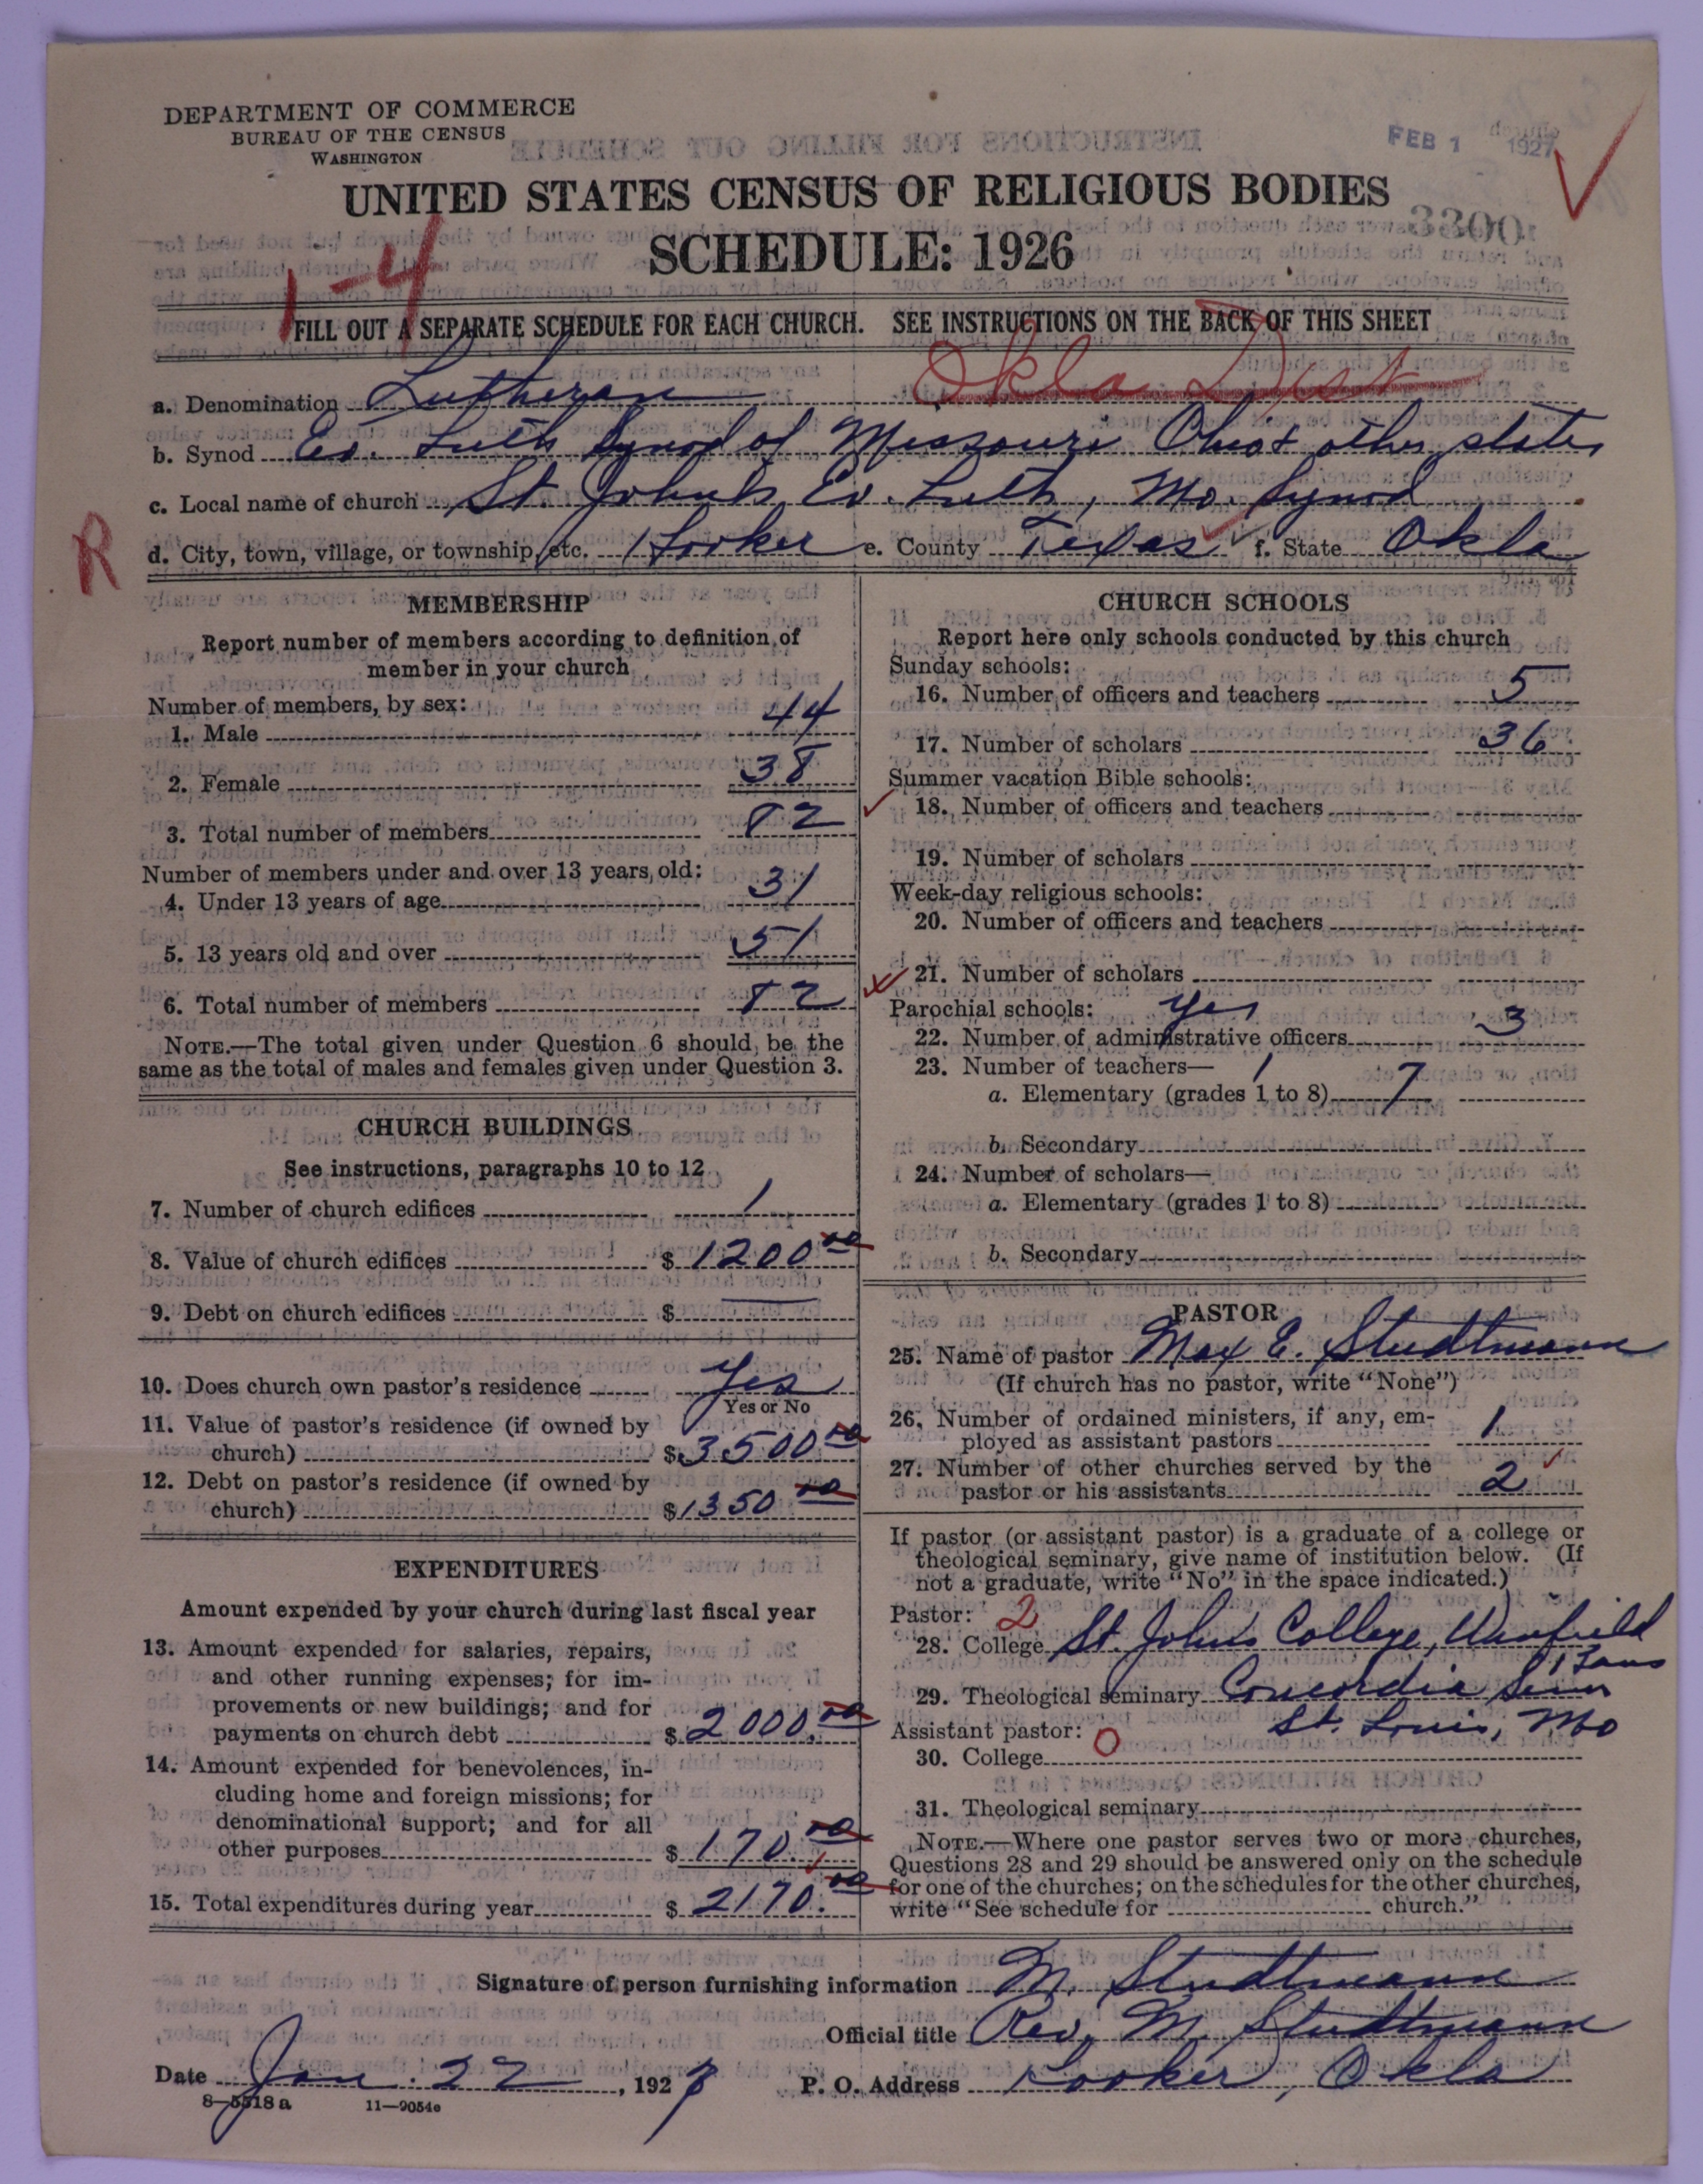 DEPARTMENT OF COMMERCE
BUREAU OF THE CENSUS
WASHINGTON
FEB 1 1927
UNITED STATES CENSUS OF RELIGIOUS BODIES
3300
SCHEDULE: 1926
1-4
FILL OUT A SEPARATE SCHEDULE FOR EACH CHURCH. SEE INSTRUCTIONS ON THE BACK OF THIS SHEET
Okla Dist
a. Denomination Lutheran
b. Synod Ev. Luth Synod of Missouri Ohio & other states
c. Local name of church St. John's Ev. Luth, Mo. Synod
R
d. City, town, village, or township, etc. Hooker e. County Texas f. State Okla
MEMBERSHIP
Report number of members according to definition of
member in your church
Number of members, by sex:
1. Male 44
2. Female 38
3. Total number of members 82
Number of members under and over 13 years old:
4. Under 13 years of age 31
5. 13 years old and over 51
6. Total number of members 82
NOTE.—The total given under Question 6 should be the
same as the total of males and females given under Question 3.
CHURCH BUILDINGS
See instructions, paragraphs 10 to 12
7. Number of church edifices 1
8. Value of church edifices $ 1200 00
9. Debt on church edifices $ —
10. Does church own pastor's residence Yes
Yes or No
11. Value of pastor's residence (if owned by
church) $ 3500 00
12. Debt on pastor's residence (if owned by
church) $ 1350 00
EXPENDITURES
Amount expended by your church during last fiscal year
13. Amount expended for salaries, repairs,
and other running expenses; for im-
provements or new buildings; and for
payments on church debt $ 2000.00
14. Amount expended for benevolences, in-
cluding home and foreign missions; for
denominational support; and for all
other purposes $ 170.00
15. Total expenditures during year $ 2170.00
CHURCH SCHOOLS
Report here only schools conducted by this church
Sunday schools:
16. Number of officers and teachers 5
17. Number of scholars 36
Summer vacation Bible schools:
18. Number of officers and teachers
19. Number of scholars
Week-day religious schools:
20. Number of officers and teachers
21. Number of scholars
Parochial schools: yes
22. Number of administrative officers 3
23. Number of teachers— 1
a. Elementary (grades 1 to 8) 7
b. Secondary
24. Number of scholars—
a. Elementary (grades 1 to 8)
b. Secondary
PASTOR
25. Name of pastor Max E. Studtmann
(If church has no pastor, write "None")
26. Number of ordained ministers, if any, em-
ployed as assistant pastors 1
27. Number of other churches served by the
pastor or his assistants 2
If pastor (or assistant pastor) is a graduate of a college or
theological seminary, give name of institution below. (If
not a graduate, write "No" in the space indicated.)
Pastor: 2
28. College St. John's College, Winfield
Kans
29. Theological seminary Concordia Sem
St. Louis, Mo
Assistant pastor: 0
30. College
31. Theological seminary
NOTE.—Where one pastor serves two or more churches,
Questions 28 and 29 should be answered only on the schedule
for one of the churches; on the schedules for the other churches,
write "See schedule for church."
Signature of person furnishing information M. Studtmann
Official title Rev. M. Studtmann
Date Jan. 22, 1927 P. O. Address Hooker, Okla
8-5518a 11-9054c